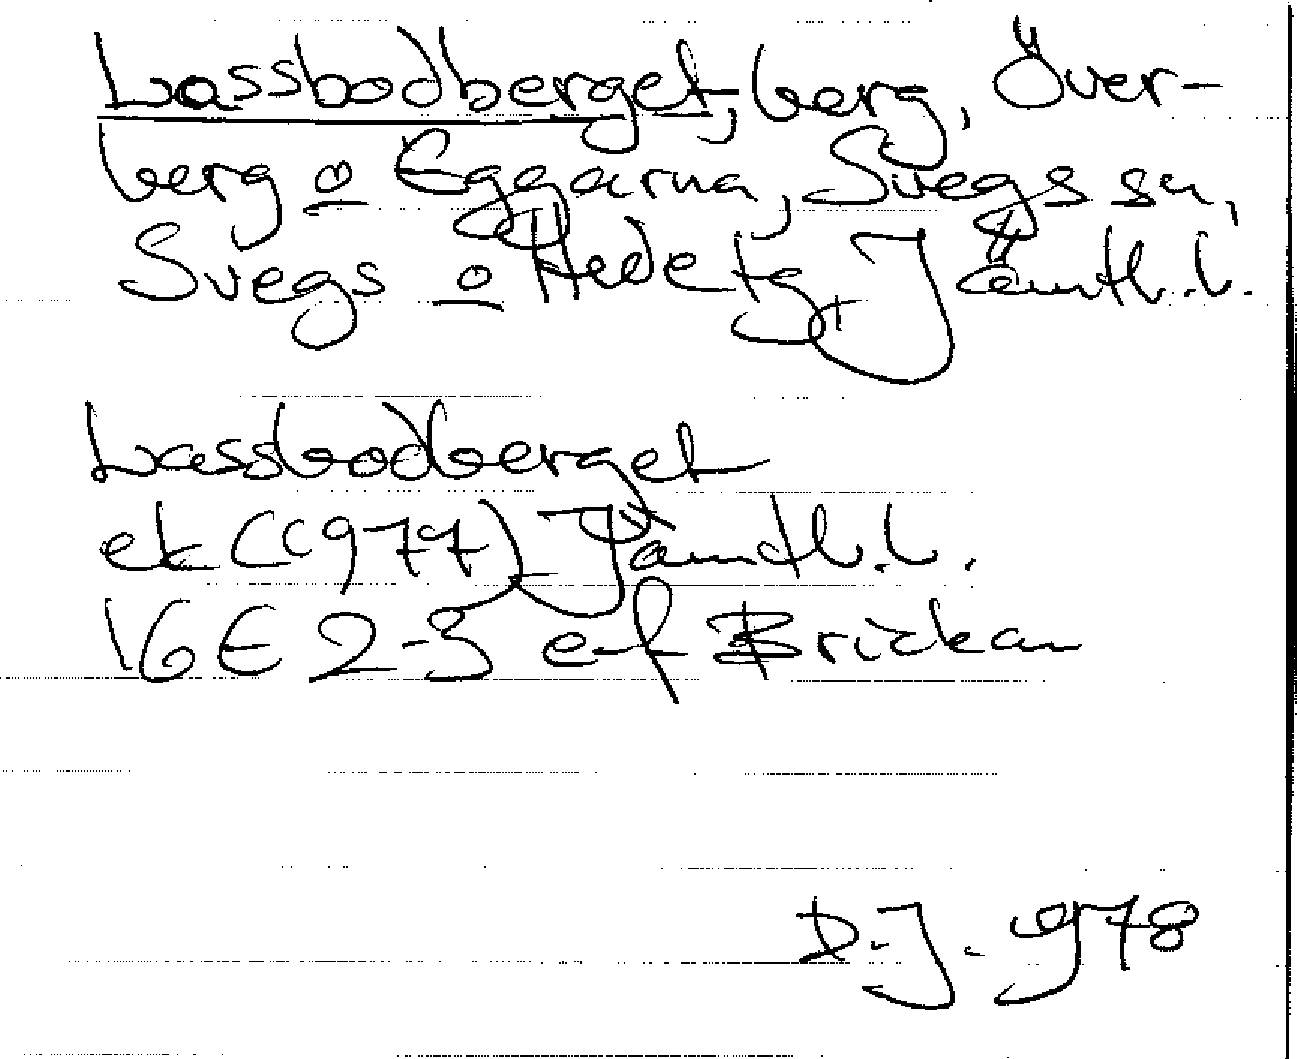 Lassbodberget, berg, Över-
berg o Eggarna, Svegs sn,
Svegs o Hede tg, Jämtl. l.
Lassbodberget
ek (1977) Jämtl. l.
16E 2-3 e-f Brickan
D.J. 978